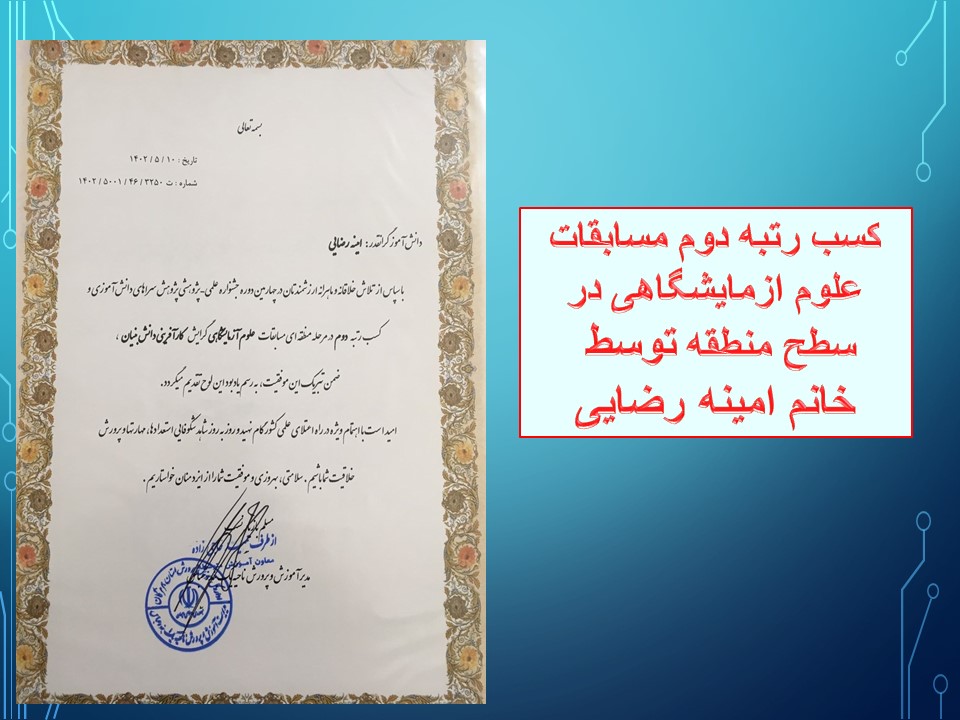 بسمه تعالی
تاریخ : ۱۰ / ۵ / ۱۴۰۲
شماره : ت ۳۲۵۰ / ۴۶ / ۵۰۰۱ / ۱۴۰۲
دانش آموز گرانقدر : امینه رضایی
با سپاس از تلاش خلاقانه و ماهرانه ارزشمندتان در چهارمین دوره جشنواره علمی-پژوهشی پژوهش سراهای دانش آموزی و
کسب رتبه دوم در مرحله منطقه ای مسابقات علوم آزمایشگاهی گرایش کارآفرینی دانش بنیان ،
ضمن تبریک این موفقیت، به رسم یادبود این لوح تقدیم میگردد.
امید است با اهتمام ویژه در راه اعتلای علمی کشور گام نهید و روز به روز شاهد شکوفایی استعدادها، مهارتها و پرورش
خلاقیت شما باشیم . سلامتی، بهروزی و موفقیت شما را از ایزد منان خواستاریم .
از طرف
معاون
مدیر آموزش و پرورش ناحیه
کسب رتبه دوم مسابقات
علوم ازمایشگاهی در
سطح منطقه توسط
خانم امینه رضایی